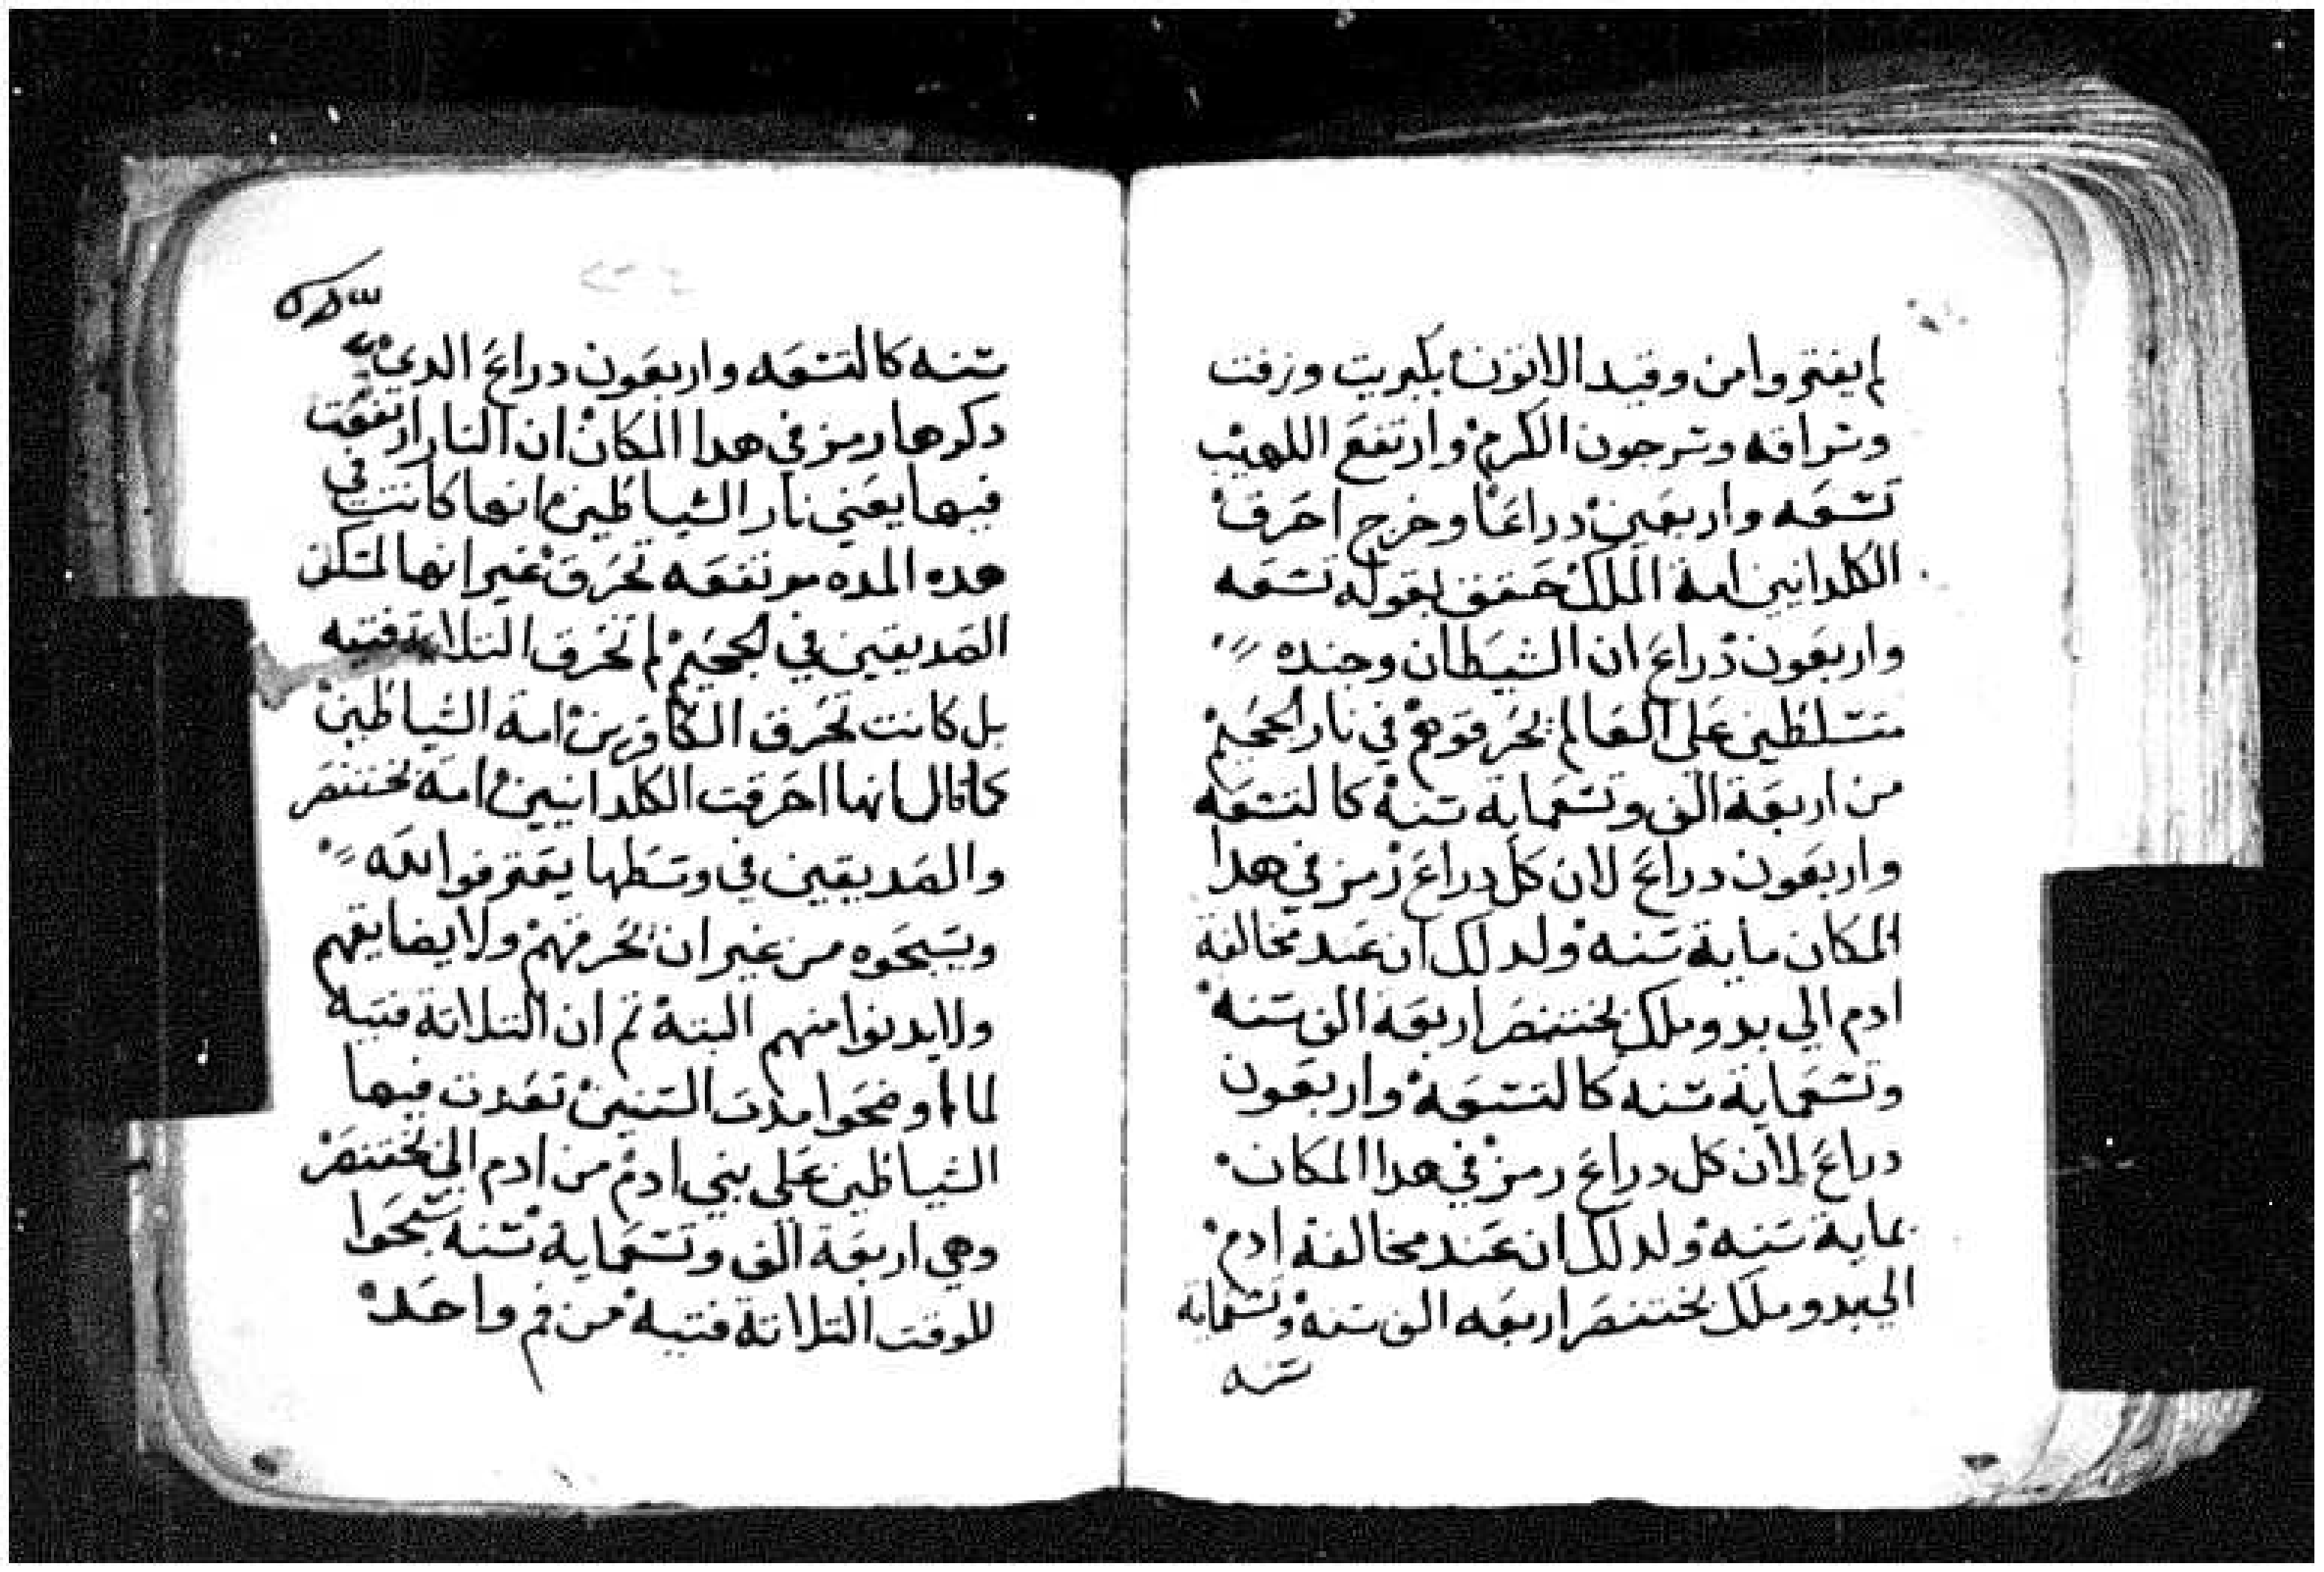 لم يفتروا من وقيد الاتون بكبريت وزفت
وسراقه وسرجون الكرم وارتفع اللهيب
تسعه واربعين دراعا وخرج احرق
الكلدانيين امة الملك حقق بقوله تسعه
واربعون دراع ان الشيطان وجنده
متسلطين على العالم يحرقوهم في نار الجحيم
من اربعة الف وتسعماية سنه كالتسعه
واربعون دراع لان كل دراع رمز في هدا
المكان ماية سنه ولدلك ان عند مخالفة
ادم الي بدو ملك بختنصر اربعه الف سنه
وتسعماية سنه كالتسعه واربعون
دراع لان كل دراع رمز في هدا المكان
بماية سنه ولدلك ان عند مخالفة ادم
الي بدو ملك بختنصر اربعه الف سنه وتسعماية
سنه
سنه كالتسعه واربعون دراع الدي
دكرها رمز في هدا المكان ان النار ارتفعت
فيها يعني نار الشياطين انها كانت في
هده المده مرتفعه تحرق غير انها لم تكن
الصديقين في الجحيم لم تحرق التلاتة فتيه
بل كانت تحرق الكافرين امة الشياطين
كما قال انها احرقت الكلدانيين امة بختنصر
والصديقين في وسطها يعترفوا لله
ويسبحوه من غير ان تحرقهم ولا يضايقهم
ولا يدنوا منهم البتة تم ان التلاتة فتية
لما اوضحوا مدت السنين تعدت فيها
الشياطين على بني ادم من ادم الي بختنصر
وهي اربعة الف وتسعماية سنه سبحوا
للوقت التلاتة فتيه من فم واحد